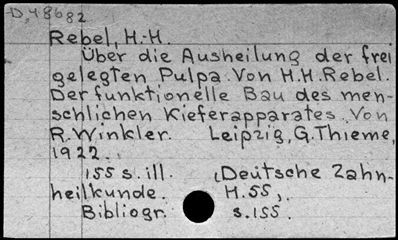 D,48682
Rebel, H.-H.
Über die Ausheilung der frei
gelegten Pulpa. Von H.H.Rebel.
Der funktionelle Bau des men-
schlichen Kieferapparates. Von
R.Winkler. Leipzig, G.Thieme,
1922.
155 s. ill. (Deutsche Zahn-
heilkunde. H.55,.
Bibliogr. s.155.